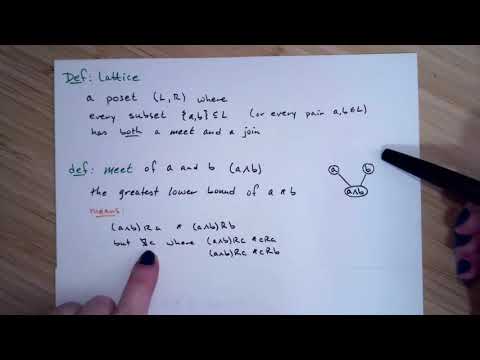 Def: Lattice
a poset (L,R) where
every subset {a,b}⊆L (or every pair a,b∈L)
has both a meet and a join
def: meet of a and b (a∧b)
the greatest lower bound of a & b
means:
(a∧b)Ra & (a∧b)Rb
but ∄c where (a∧b)Rc & cRa
(a∧b)Rc & cRb
a b
a∧b